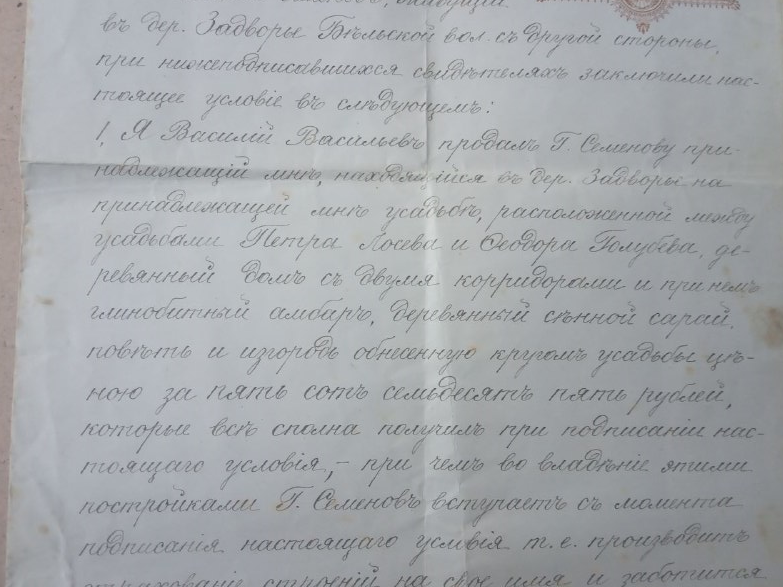 въ дер. Задворье Бѣльской вол. съ другой стороны,
при нижеподписавшихся свидѣтеляхъ заключили нас-
тоящее условіе въ слѣдующемъ:
1, Я Василій Васильевъ продалъ Г. Семенову при-
надлежащій мнѣ, находящійся въ дер. Задворье на
принадлежащей мнѣ усадьбѣ, расположенной между
усадьбами Петра Лосева и Ѳеодора Голубева, де-
ревянный домъ съ двумя корридорами и при немъ
глинобитный амбаръ, деревянный сѣнной сарай,
повѣть и изгородь обнесенную кругомъ усадьбы цѣ-
ною за пять сотъ семьдесятъ пять рублей,
которые всѣ сполна получилъ при подписаніи нас-
тоящаго условія,- при чемъ во владѣніе этими
постройками Г. Семеновъ вступаетъ съ момента
подписанія настоящаго условія т.е. производитъ
страхованіе строеній на свое имя и заботится